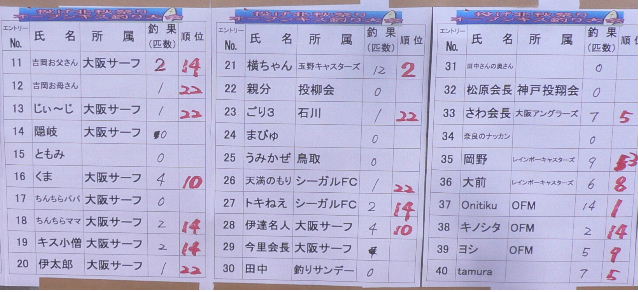 オープンキス釣り大会
エントリー No. 氏名 所属 釣果(匹数) 順位
11 吉岡お父さん 大阪サーフ 2 14
12 吉岡お母さん 1 22
13 じぃ～じ 大阪サーフ 1 22
14 隠岐 大阪サーフ 0
15 ともみ 0
16 くま 大阪サーフ 4 10
17 ちんちらパパ 大阪サーフ 0
18 ちんちらママ 大阪サーフ 2 14
19 キス小僧 大阪サーフ 2 14
20 伊太郎 大阪サーフ 1 22
オープンキス釣り大会
エントリー No. 氏名 所属 釣果(匹数) 順位
21 横ちゃん 玉野キャスターズ 12 2
22 親分 投柳会 0
23 ごり3 石川 1 22
24 まぴゅ 0
25 うみかぜ 鳥取 0
26 天満のもり シーガルFC 1 22
27 トキねえ シーガルFC 2 14
28 伊達名人 大阪サーフ 4 10
29 今里会長 大阪サーフ
30 田中 釣りサンデー 0
オープンキス釣り大会
エントリー No. 氏名 所属 釣果(匹数) 順位
31 田中さんの奥さん 0
32 松原会長 神戸投翔会 0
33 さわ会長 大阪アングラーズ 7 5
34 奈良のナッカン 0
35 岡野 レインボーキャスターズ 9 3
36 大前 レインボーキャスターズ 6 8
37 Onitiku OFM 14 1
38 キノシタ OFM 2 14
39 ヨシ OFM 5 9
40 tamura 7 5